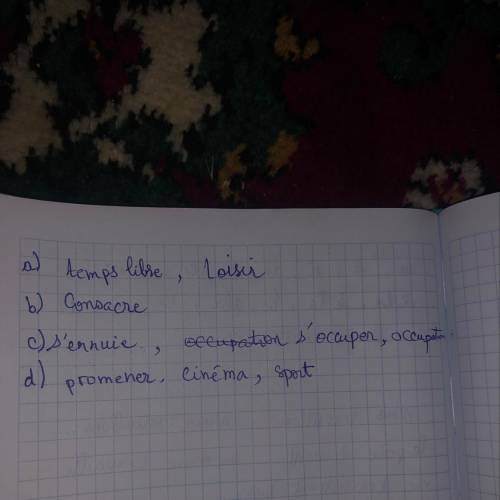 a) temps libre , Loisir
b) Consacre
c) s'ennuie , occupation s'occuper, occupation
d) promener. Cinéma, sport